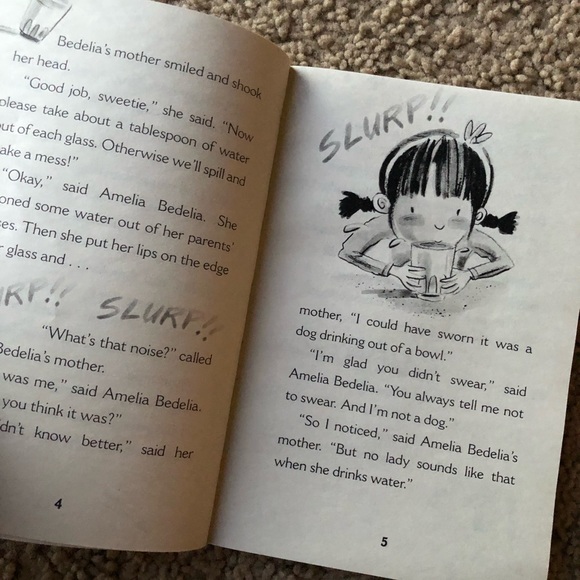 Bedelia's mother smiled and shook
her head.
"Good job, sweetie," she said. "Now
please take about a tablespoon of water
out of each glass. Otherwise we'll spill and
make a mess!"
"Okay," said Amelia Bedelia. She
oned some water out of her parents'
ses. Then she put her lips on the edge
r glass and . . .
URP!! SLURP!!
"What's that noise?" called
Bedelia's mother.
was me," said Amelia Bedelia.
you think it was?"
dn't know better," said her
4
SLURP!!
mother, "I could have sworn it was a
dog drinking out of a bowl."
"I'm glad you didn't swear," said
Amelia Bedelia. "You always tell me not
to swear. And I'm not a dog."
"So I noticed," said Amelia Bedelia's
mother. "But no lady sounds like that
when she drinks water."
5